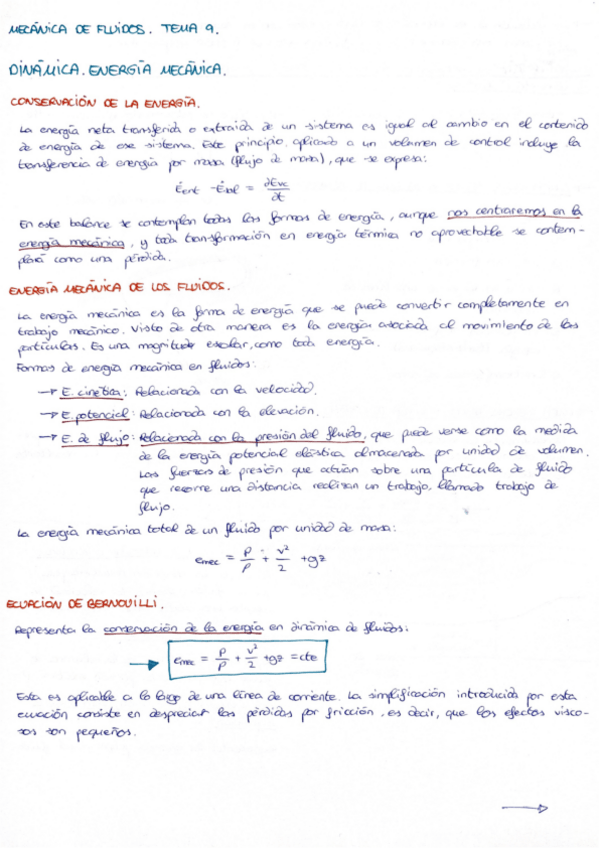 MECÁNICA DE FLUIDOS. TEMA 9.
DINÁMICA. ENERGÍA MECÁNICA.
CONSERVACIÓN DE LA ENERGÍA.
La energía neta transferida o extraida de un sistema es igual al cambio en el contenido
de energía de ese sistema. Este principio aplicado a un volumen de control incluye la
transferencia de energía por masa (flujo de masa), que se expresa:
Ėent - Ėsal = ∂Evc/∂t
En este balance se contemplan todas las formas de energía, aunque nos centraremos en la
energía mecánica, y toda transformación en energía térmica no aprovechable se contem-
plará como una pérdida.
ENERGÍA MECÁNICA DE LOS FLUIDOS.
La energía mecánica es la forma de energía que se puede convertir completamente en
trabajo mecánico. Visto de otra manera es la energía asociada al movimiento de las
partículas. Es una magnitud escalar, como toda energía.
Formas de energía mecánica en fluidos:
→ E. cinética: Relacionada con la velocidad.
→ E. potencial: Relacionada con la elevación.
→ E. de flujo: Relacionada con la presión del fluido, que puede verse como la medida
de la energía potencial elástica almacenada por unidad de volumen.
Las fuerzas de presión que actúan sobre una partícula de fluido
que recorre una distancia realizan un trabajo, llamado trabajo de
flujo.
La energía mecánica total de un fluido por unidad de masa:
emec = P/ρ + v²/2 + gz
ECUACIÓN DE BERNOUILLI.
Representa la conservación de la energía en dinámica de fluidos:
→ emec = P/ρ + v²/2 + gz = cte
Esta es aplicable a lo largo de una línea de corriente. La simplificación introducida por esta
ecuación consiste en despreciar las pérdidas por fricción, es decir, que los efectos visco-
sos son pequeños.
→